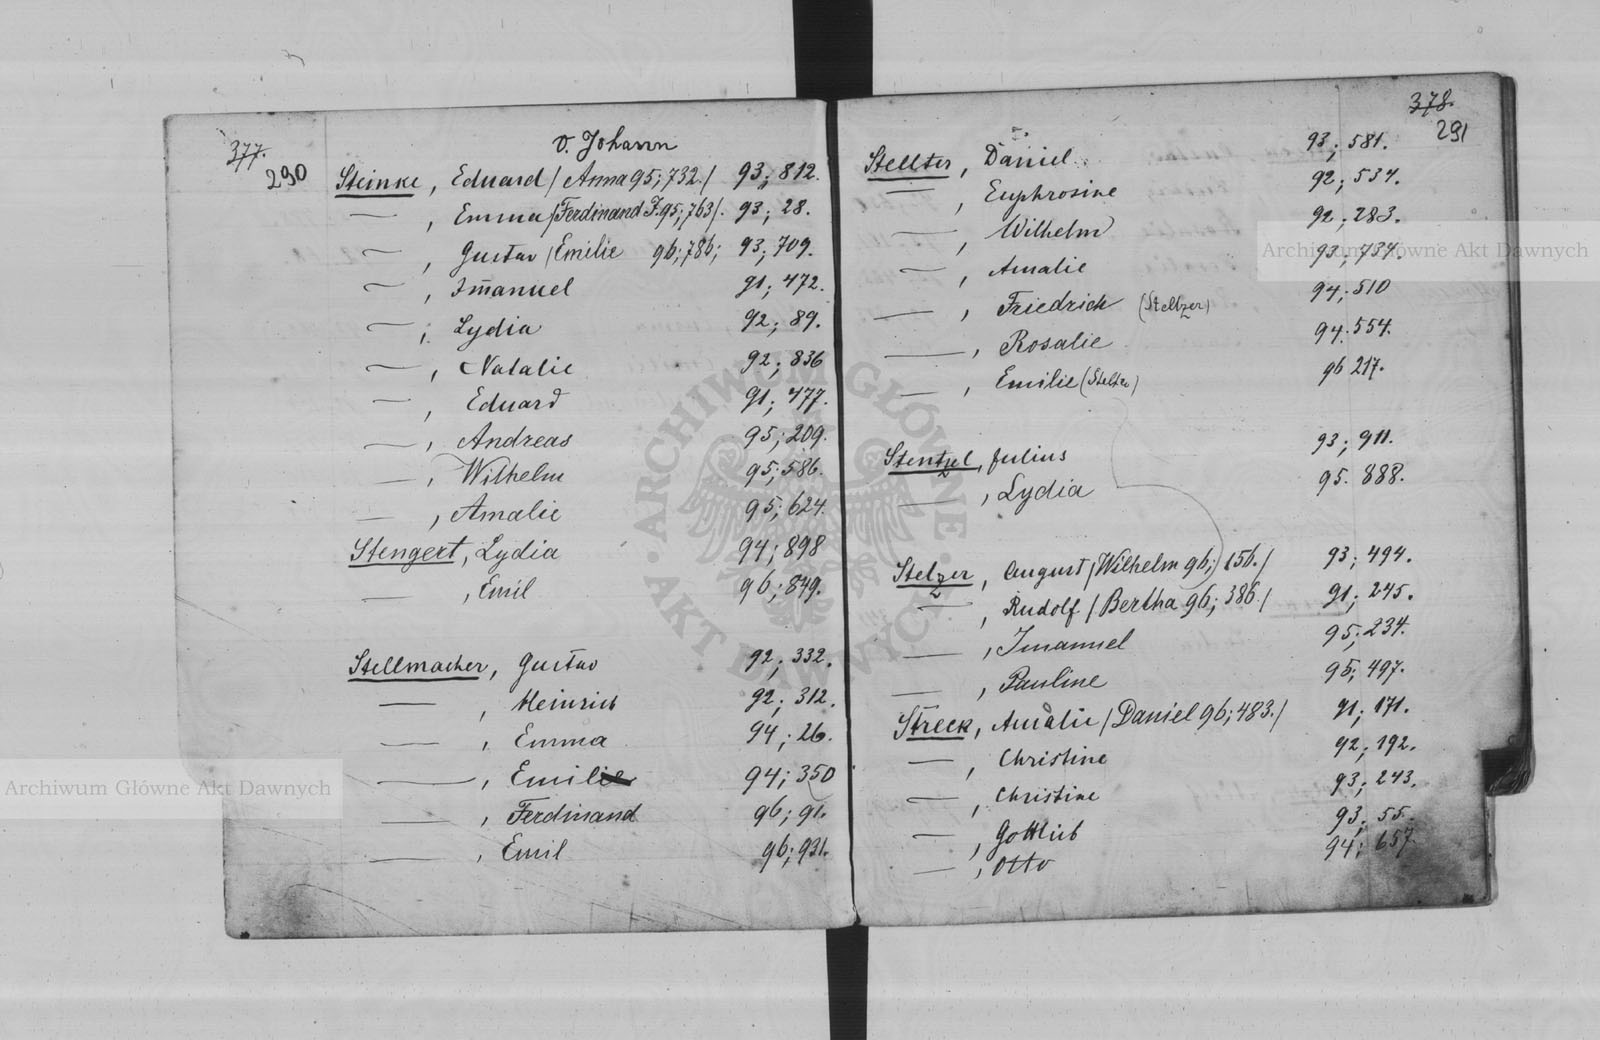 377.
290
v. Johann
Steinke, Eduard / Anna 95; 732. / 93; 812.
— , Emma / Ferdinand F. 95; 763 /. 93; 28.
— , Gustav / Emilie 96; 786; 93; 709.
— , Im̅anuel 91; 472.
— , Lydia 92; 89.
— , Natalie 92; 836
— , Eduard 91; 477.
— , Andreas 95; 209.
— , Wilhelm 95; 586.
— , Amalie 95; 624.
Stengert, Lydia 94; 898
— , Emil 96; 849.
Stellmacher, Gustav 92; 332.
— , Heinrich 92; 312.
— , Emma 94; 26.
— , Emil 94; 350
— , Ferdinand 96; 91.
— , Emil 96; 931.
378.
291
Stellter, Daniel 93; 581.
— , Euphrosine 92; 534.
— , Wilhelm 92; 283.
— , Amalie 93; 734.
— , Friedrich (Steltzer) 94; 510
— , Rosalie 94. 554.
— , Emilie 96 217.
Stentzel, Julius 93; 911.
— , Lydia 95. 888.
Stelzer, August / Wilhelm 96; 156. / 93; 494.
— , Rudolf / Bertha 96; 386. / 91; 245.
— , Imanuel 95; 234.
— , Pauline 95; 497.
Streck, Amalie / Daniel 96; 483. / 91; 171.
— , Christine 92; 192.
— , Christine 93; 243.
— , Gottlieb 93; 55.
— , Otto 94; 657.
Archiwum Główne Akt Dawnych
Archiwum Główne Akt Dawnych
ARCHIWUM GŁÓWNE AKT DAWNYCH